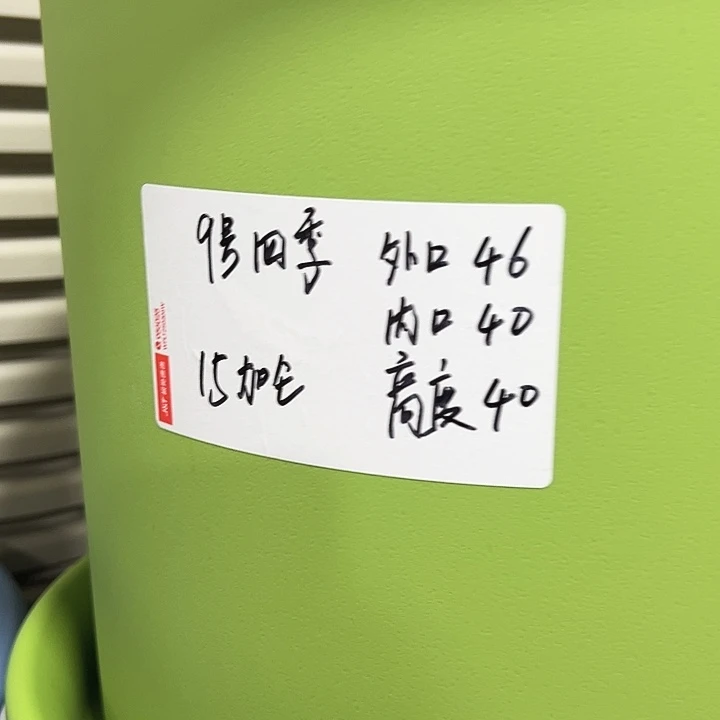 9号四季 外口 46
内口 40
15加仑 高度 40